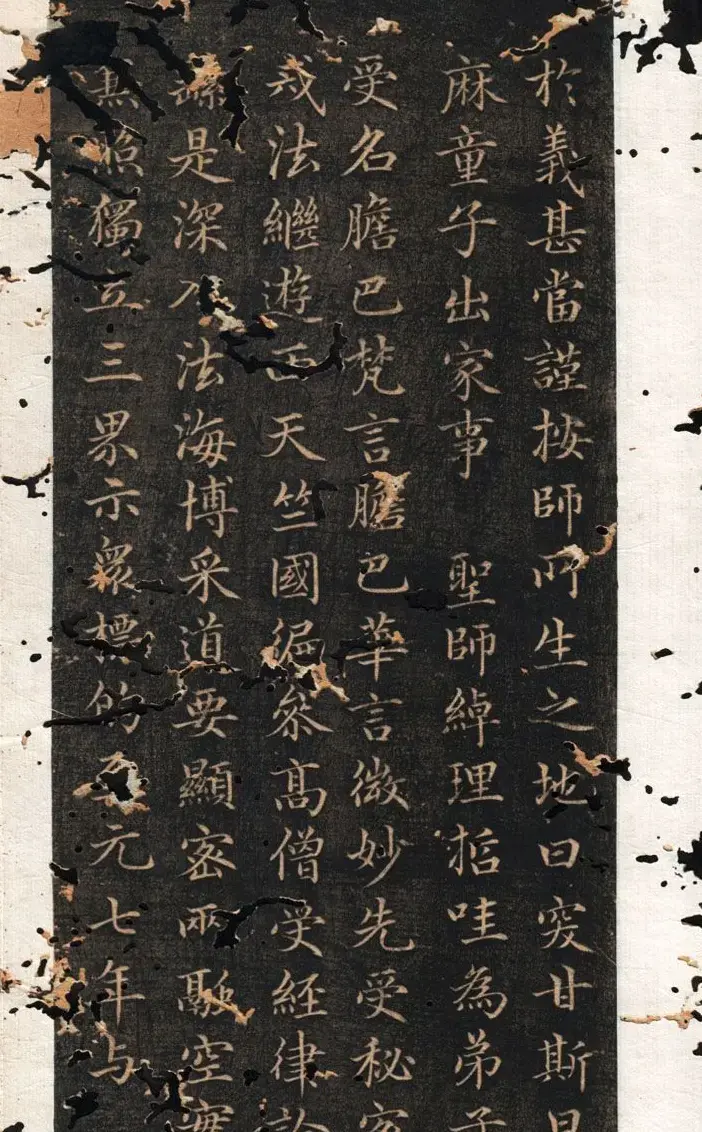 於義甚當謹按師所生之地曰突甘斯旦
麻童子出家事 聖師綽理哲哇為弟子
受名膽巴梵言膽巴華言微妙先受秘密
戒法繼遊西天竺國徧參高僧受經律論
繇是深入法海博采道要顯密兩融空實
照獨立三界示眾標的至元七年与